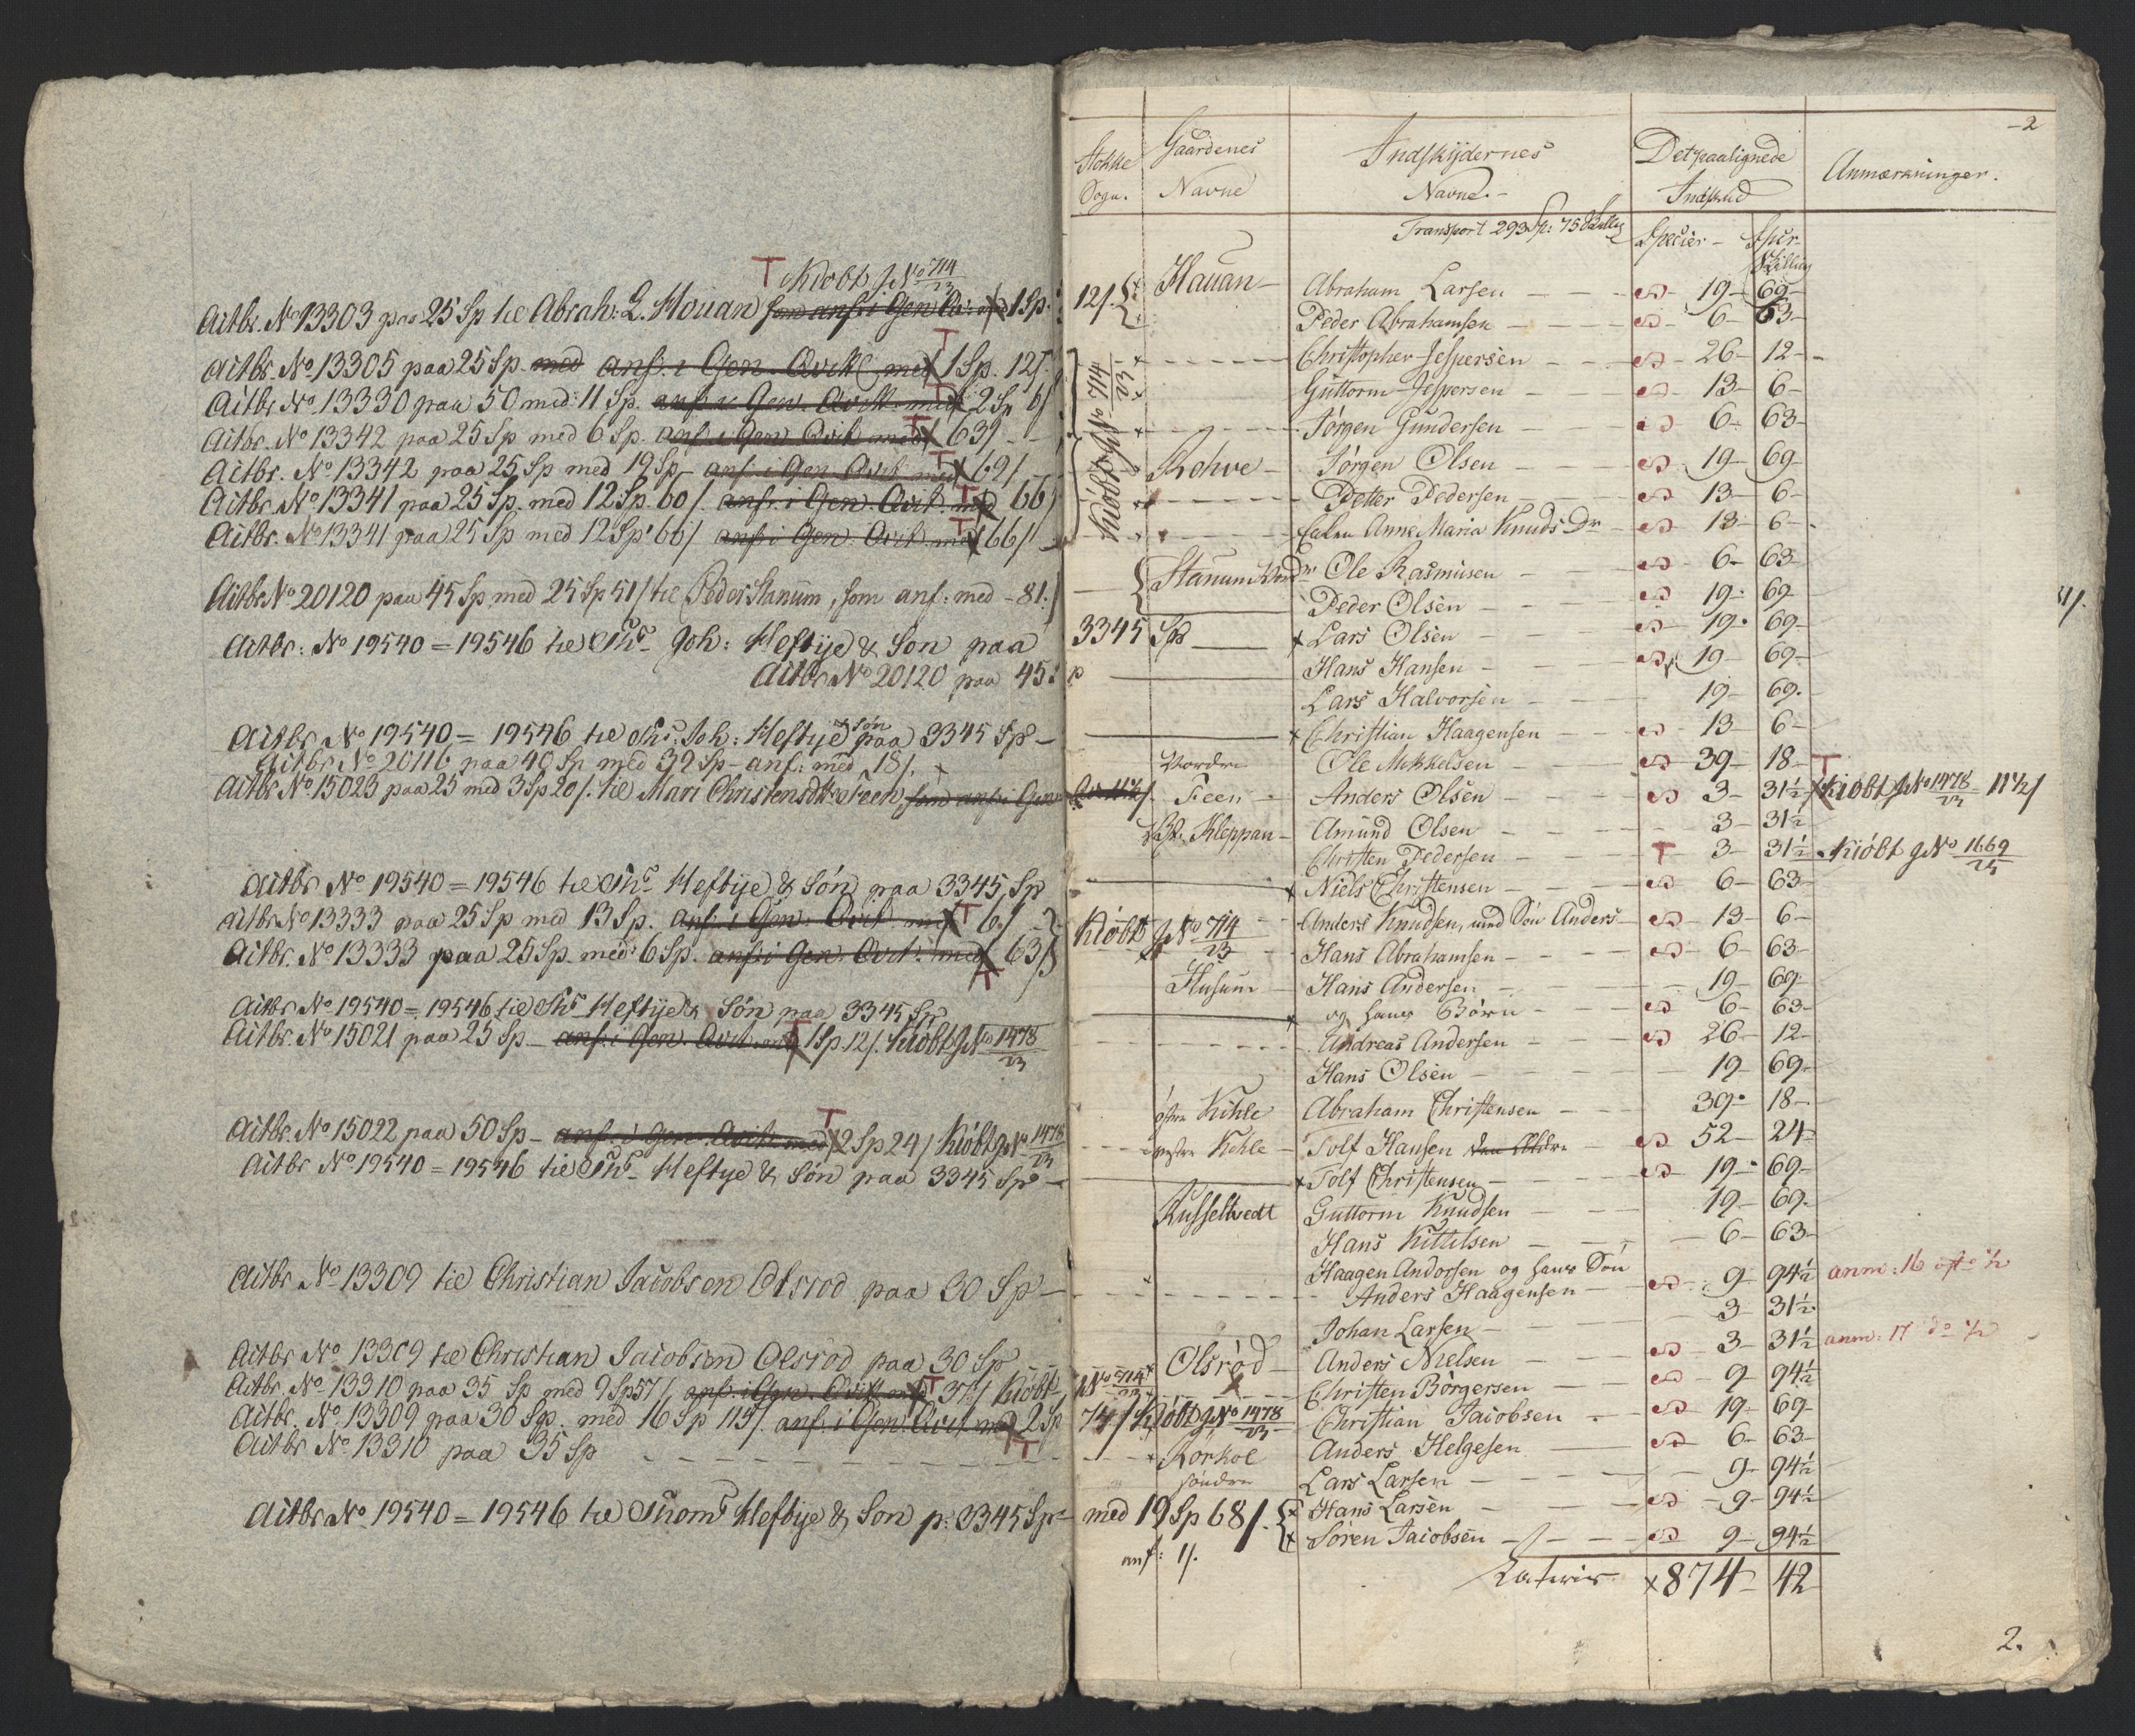 Kiobt g No 714/23
Actbr. No 13303 paa 25 Sp til Abrah: L. Houan som anf: i Gen Qv: med 1 Sp.
Actbr. No 13305 paa 25 Sp. med anf: i Gen. Qvitt. med 1 Sp. 12 /.
Actbr No 13330 paa 50 med 11 Sp. anf: i Gen. Qvitt. med 2 Sp 6 /
Actbr. No 13342 paa 25 Sp med 6 Sp. anf: i Gen Qvit med 63 /
Actbr. No 13342 paa 25 Sp med 19 Sp - anf: i Gen Qvit med 69 /
Actbr. No 13341 paa 25 Sp. med 12 Sp. 60 /. anf: i Gen. Qvit. med 66 /
Actbr. No 13341 paa 25 Sp med 12 Sp. 66 / anf: i Gen. Qvit. med 66 /
Actbr No 20120 paa 45 Sp med 25 Sp 51 / til Peder Stanum, som anf: med - 81. /
Actbr: No 19540 = 19546 til Ths Joh: Heftye & Søn paa
Actbr No 20120 paa 45 Sp
Actbr No 19540 = 19546 til Ths. Joh: Heftye & Søn paa 3345 Sp -
Actbr No 20116 paa 40 Sp med 39 Sp - anf: med 18 /.
Actbr No 15023 paa 25 med 3 Sp 20 /. til Mari Christensdtr Feen som anf: i Gen
Actbr No 19540 = 19546 til Ths Heftye & Søn paa 3345 Sp
Actbr No 13333 paa 25 Sp med 13 Sp. anf: i Gen. Qvit. med 6 /
Actbr. No 13333 paa 25 Sp. med 6 Sp. anf: i Gen. Qvit. med 63 /
Actbr No 19540 = 19546 til Ths Heftye & Søn paa 3345 Sp
Actbr. No 15021 paa 25 Sp - anf: i Gen. Qvit med 1 Sp. 12 /. Kiöbt g No 1478/23
Actbr. No 15022 paa 50 Sp - anf: i Gen. Qvitt med 2 Sp 24 / Kiöbt g No 1478/23
Actbr No 19540 = 19546 til Ths Heftye & Søn paa 3345 Sp -
Actbr No 13309 til Christian Jacobsen Olsrod paa 30 Sp -
Actbr No 13309 til Christian Jacobsen Olsrod paa 30 Sp
Actbr. No 13310 paa 35 Sp med 9 Sp 57 / anf: i Gen. Qvitt med 37 / Kiöbt
Actbr. No 13309 paa 30 Sp. med 16 Sp 115 /. anf: i Gen. Qvit med 2 Sp
Actbr No 13310 paa 35 Sp
Actbr No 19540 = 19546 til Thoms Heftye & Søn p: 3345 Sp
-2
Sogn. Gaardenes Navne Indskydernes Navne. Det paalignede Indskud Anmærkninger.
Transport 293 Sp: 75 Skilling Specier - Spcr. Skilling
12 /. Hauan - Abraham Larsen 19 - 69 -
Peder Abrahamsen 6 - 63 -
Christopher Jespersen 26 - 12 -
Guttorm Jespersen 13 - 6 -
Jörgen Gundersen 6 - 63 -
Kiöbt g No 714/23
Rohve - Jörgen Olsen 19 - 69 -
Petter Pedersen 13 - 6 -
Anne Maria Knuds Dr 13 - 6 -
Stanum Ole Rasmusen 6 - 63 -
Peder Olsen 19 - 69
3345 Sp Lars Olsen 19 - 69 -
Hans Hansen 19 - 69 -
Lars Halvorsen 19 - 69.
Christian Haagensen 13 - 6 -
Nordre Ole Mikkelsen 39 - 18 -
Feen Anders Olsen 3 - 31½ Kiöbt g No 1478/23 - 11½ /
Kleppan - Amund Olsen 3 - 31½
Christen Pedersen 3 - 31½ Kiöbt g No 1669/25
Niels Christensen 6 - 63 -
Kiöbt g No 714/23 Anders Knudsen, und Søn Anders 13 - 6 -
Hans Abrahamsen 6 - 63 -
Husum Hans Andersen 19 - 69 -
og hans Börn 6 - 63 -
Andreas Andersen 26 - 12 -
Hans Olsen 19 - 69 -
östre Kihle Abraham Christensen 39 - 18 -
vestre Kihle - Tolf Hansen den Ældre 52 - 24
Tolf Christensen 19 - 69 -
Russeltvedt Guttorm Knudsen 19 - 69 -
Hans Kittelsen 6 - 63 -
Haagen Andorsen og hans Søn
Anders Haagensen 9 - 94½ anm: 16
Johan Larsen 3 - 31½
Olsröd - Anders Nielsen 3 - 31½ anm: 17 do ½
No 714/23 Christen Börgersen 9 - 94½
74 / Kiöbt g No 1478/23 Christian Jacobsen 19 - 69 -
Rorkol Anders Helgesen 6 - 63 -
söndre Lars Larsen 9 - 94½
med 19 Sp 68 /. Hans Larsen 9 - 94½
anf: 1 /. Søren Jacobsen 9 - 94½
Lateris 874 - 42
2.